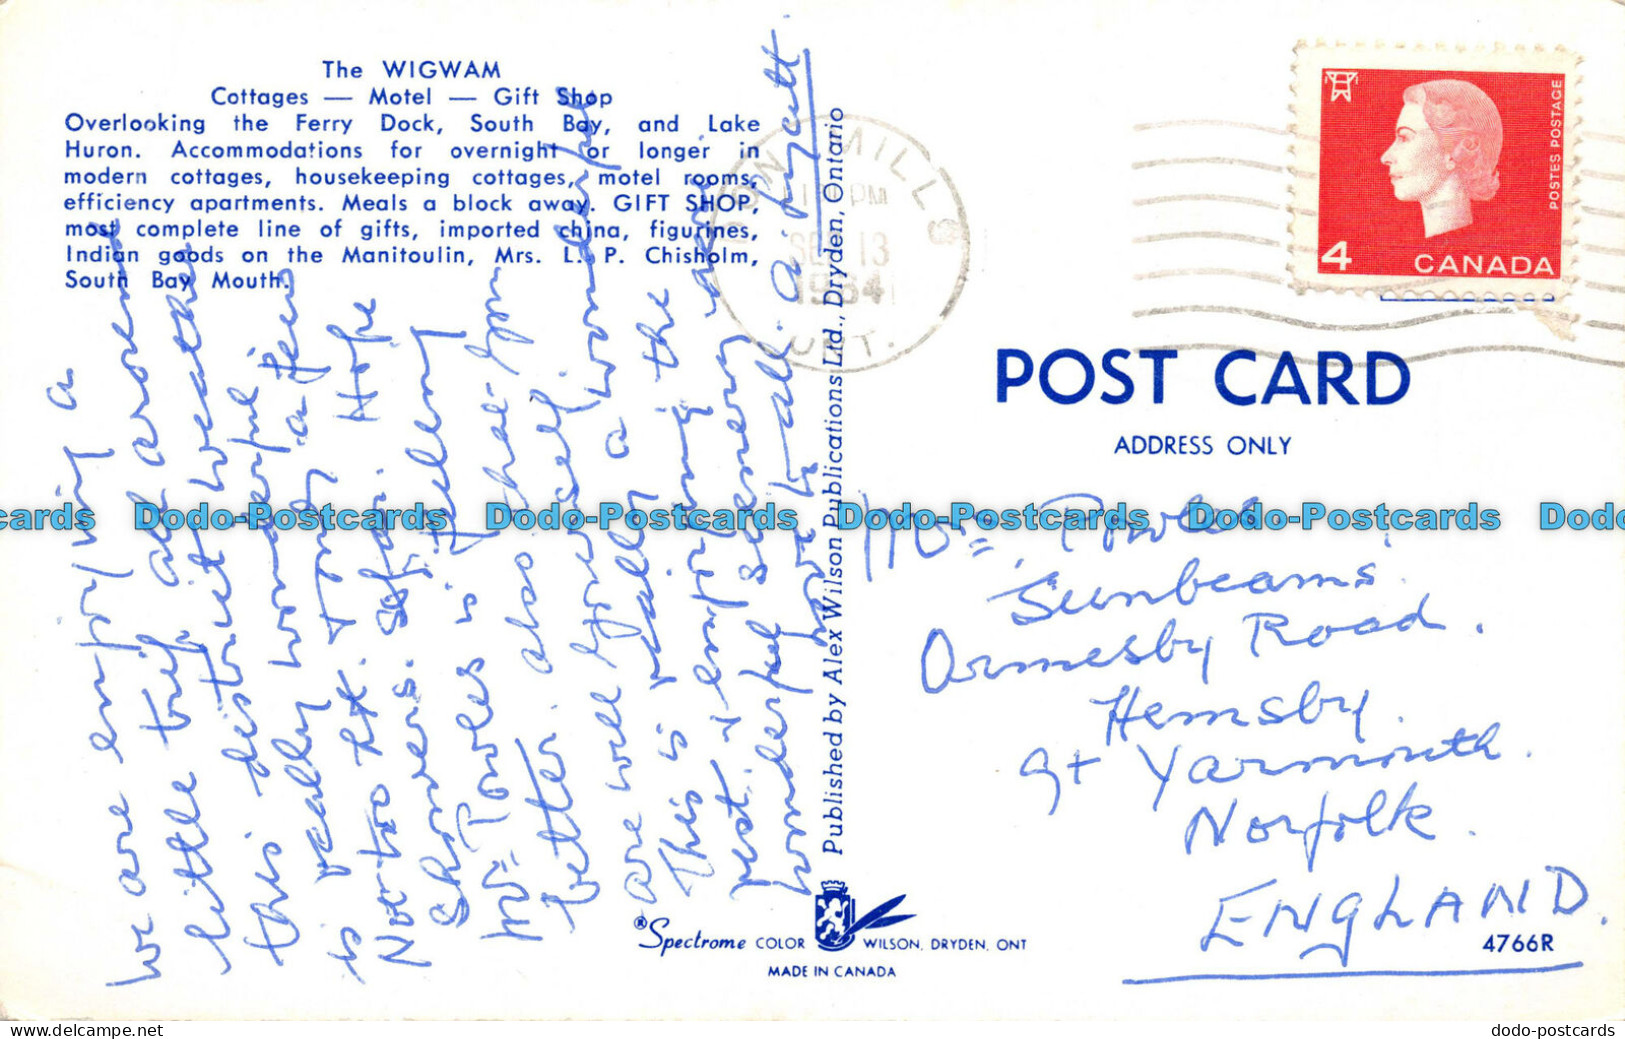 The WIGWAM
Cottages — Motel — Gift Shop
Overlooking the Ferry Dock, South Bay, and Lake
Huron. Accommodations for overnight or longer in
modern cottages, housekeeping cottages, motel rooms,
efficiency apartments. Meals a block away. GIFT SHOP,
most complete line of gifts, imported china, figurines,
Indian goods on the Manitoulin, Mrs. L. P. Chisholm,
South Bay Mouth.
We are enjoying a
little trip all around
this district weather
really wonderful
is two a few
Not too Hope
Showers. So far.
Mr= Powles is feeling
better. also
are well yourself
This is really a wonderful
rest. & enjoying the
wonderful scenery
love to all.
Published by Alex Wilson Publications Ltd., Dryden, Ontario
DON MILLS
PM
13
1964
ONT.
POSTES POSTAGE
4 CANADA
POST CARD
ADDRESS ONLY
Mrs= Powles.
'Sunbeams'.
Ormesby Road.
Hemsby.
Gt Yarmouth.
Norfolk.
ENGLAND.
4766R
®Spectrome COLOR WILSON, DRYDEN, ONT
MADE IN CANADA
cards Dodo-Postcards Dodo-Postcards Dodo-Postcards Dodo-Postcards Dodo
www.delcampe.net dodo-postcards